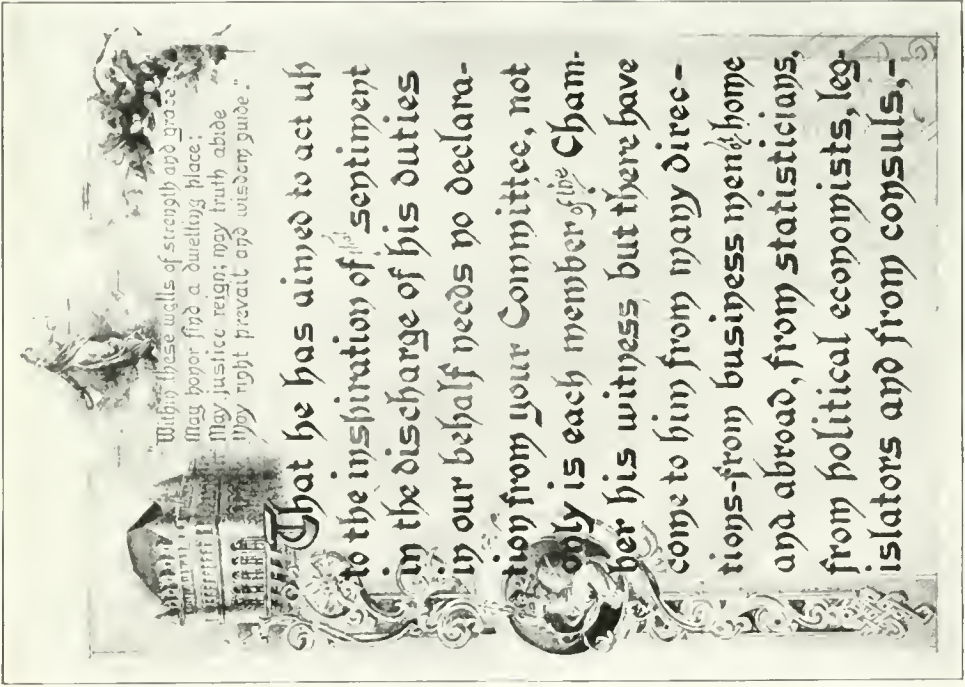 "Within these walls of strength and grace
May honor find a dwelling place:
May justice reign; may truth abide
May right prevail and wisdom guide."
That he has aimed to act up
to the inspiration of this sentiment
in the discharge of his duties
in our behalf needs no declara-
tion from your Committee, not
only is each member of the Cham-
ber his witness, but there have
come to him from many direc-
tions-from business men at home
and abroad, from statisticians,
from political economists, leg-
islators and from consuls,-